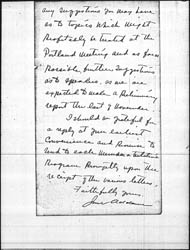 any suggestions you may have
as to topics which might
profitably be treated at the
Portland meeting and as far as
possible, further suggestions
as to speakers, as we are
expected to make a preliminary
report the last of November.
I should be grateful for
a reply at your earliest
convenience and
to each member a tentative
program promptly upon the
receipt of the various letters.
Faithfully yours
Jane Addams